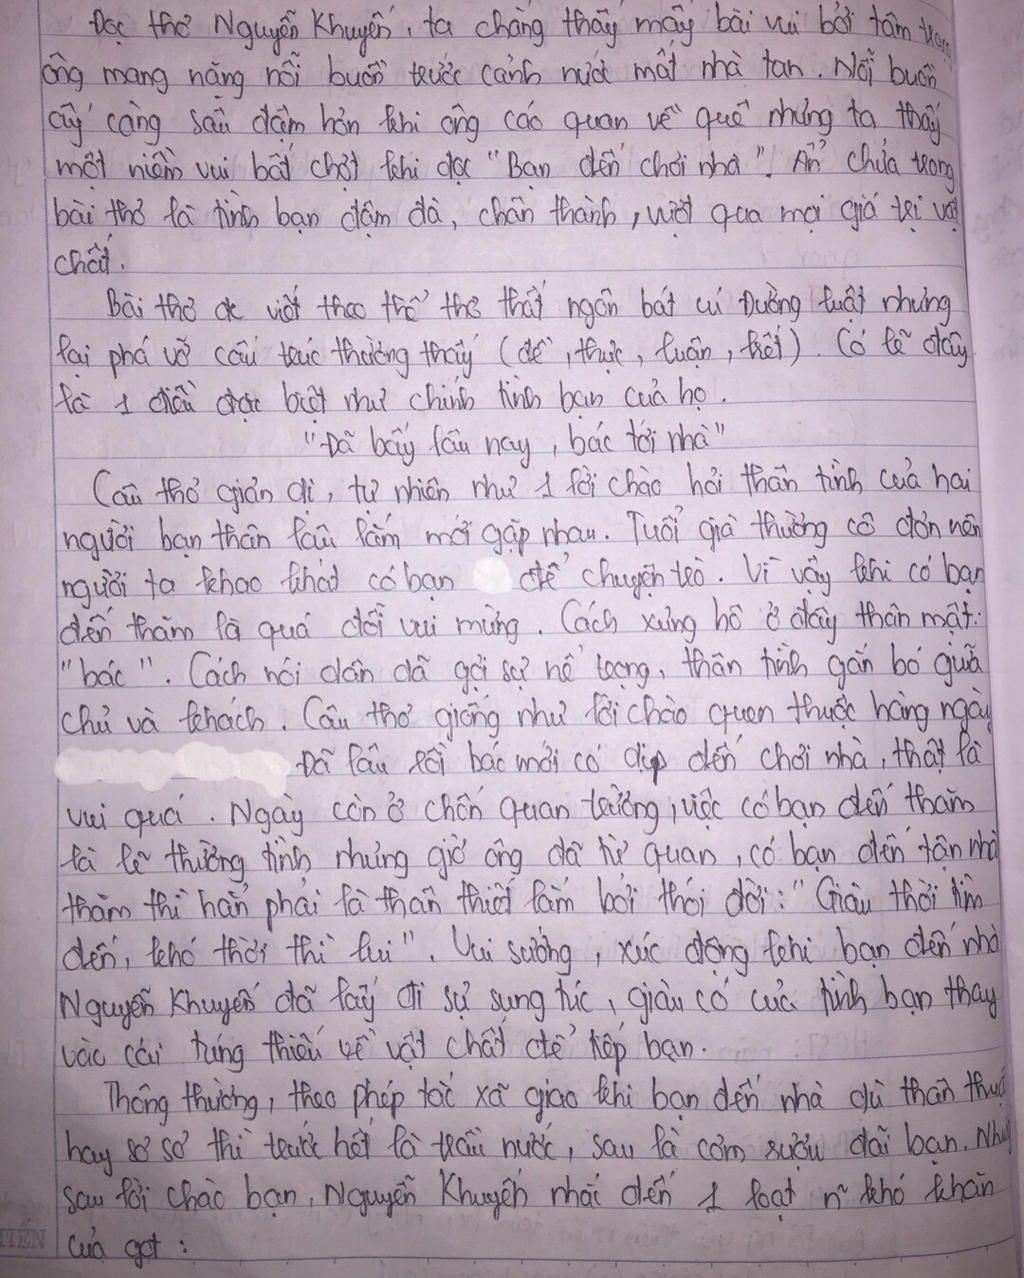 Đọc thơ Nguyễn Khuyến, ta chẳng thấy mấy bài vui bởi tâm trạng
ông mang nặng nỗi buồn trước cảnh nước mất nhà tan. Nỗi buồn
ấy càng sâu đậm hơn khi ông cáo quan về quê nhưng ta thấy
một niềm vui bất chợt khi đọc "Bạn đến chơi nhà". Ẩn chứa trong
bài thơ là tình bạn đậm đà, chân thành, vượt qua mọi giá trị vật
chất.
Bài thơ đc viết theo thể thơ thất ngôn bát cú Đường luật nhưng
lại phá vỡ cấu trúc thường thấy (đề, thực, luận, kết). Có lẽ đây
là 1 điều đặc biệt như chính tình bạn của họ.
"Đã bấy lâu nay, bác tới nhà"
Câu thơ giản dị, tự nhiên như 1 lời chào hỏi thân tình của hai
người bạn thân lâu lắm mới gặp nhau. Tuổi già thường cô đơn nên
người ta khao khát có bạn để chuyện trò. Vì vậy khi có bạn
đến thăm là quá đỗi vui mừng. Cách xưng hô ở đây thân mật:
"bác". Cách nói dân dã gợi sự nể trọng, thân tình gắn bó giữa
chủ và khách. Câu thơ giống như lời chào quen thuộc hàng ngày
Đã lâu rồi bác mới có dịp đến chơi nhà, thật là
vui quá. Ngày còn ở chốn quan trường, việc có bạn đến thăm
là lẽ thường tình nhưng giờ ông đã từ quan, có bạn đến tận nhà
thăm thì hẳn phải là thân thiết lắm bởi thói đời: "Giàu thời tìm
đến, khó thời thì lui". Vui sướng, xúc động khi bạn đến nhà
Nguyễn Khuyến đã lấy đi sự sung túc, giàu có của tình bạn thay
vào cái túng thiếu về vật chất để tiếp bạn.
Thông thường, theo phép tắc xã giao khi bạn đến nhà dù thân thuộc
hay sơ sơ thì trước hết là trầu nước, sau là cơm rượu đãi bạn. Nhưng
sau lời chào bạn, Nguyễn Khuyến nhắc đến 1 loạt n~ khó khăn
của gđ: